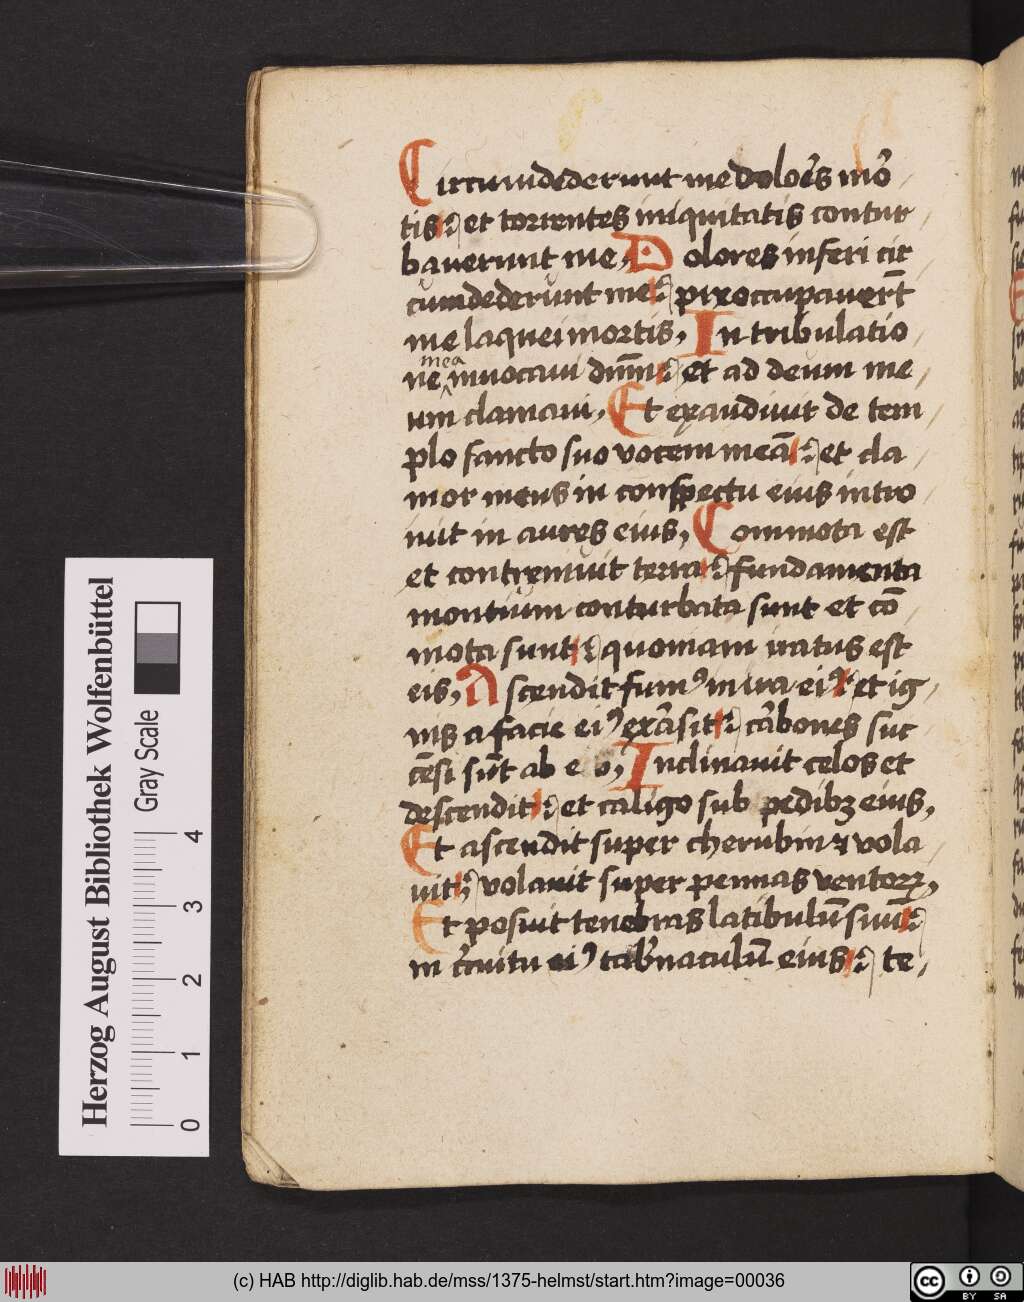 Circumdederunt me dolor̄es mor̄
tis: et torrentes iniquitatis contur
baverunt me, Dolores inferi cir
cumdederunt me: preoccupaverūt
me laquei mortis, In tribulatio
ne mea invocavi dnm̄: et ad deum me
um clamavi, Et exaudivit de tem
plo sancto suo vocem meā: et cla
mor meus in conspectu eius intro
ivit in aures eius, Commota est
et contremuit terra: fundamenta
montium conturbata sunt et cō
mota sunt: quoniam iratus est
eis, Ascendit fumꝰ in ira eiꝰ et ig
nis a facie eiꝰ exārsit: cārbones suc
cēsi sūt ab eo, Inclinavit celos et
descendit: et caligo sub pedibꝫ eius,
Et ascendit super cherubin ⁊ vola
vit: volavit super pennas ventoꝝ,
Et posuit tenebras latibulū suū:
in cr̄cuitu eiꝰ tab̄naculū eius: te
Herzog August Bibliothek Wolfenbüttel
Gray Scale
0 1 2 3 4
(c) HAB http://diglib.hab.de/mss/1375-helmst/start.htm?image=00036
cc BY SA